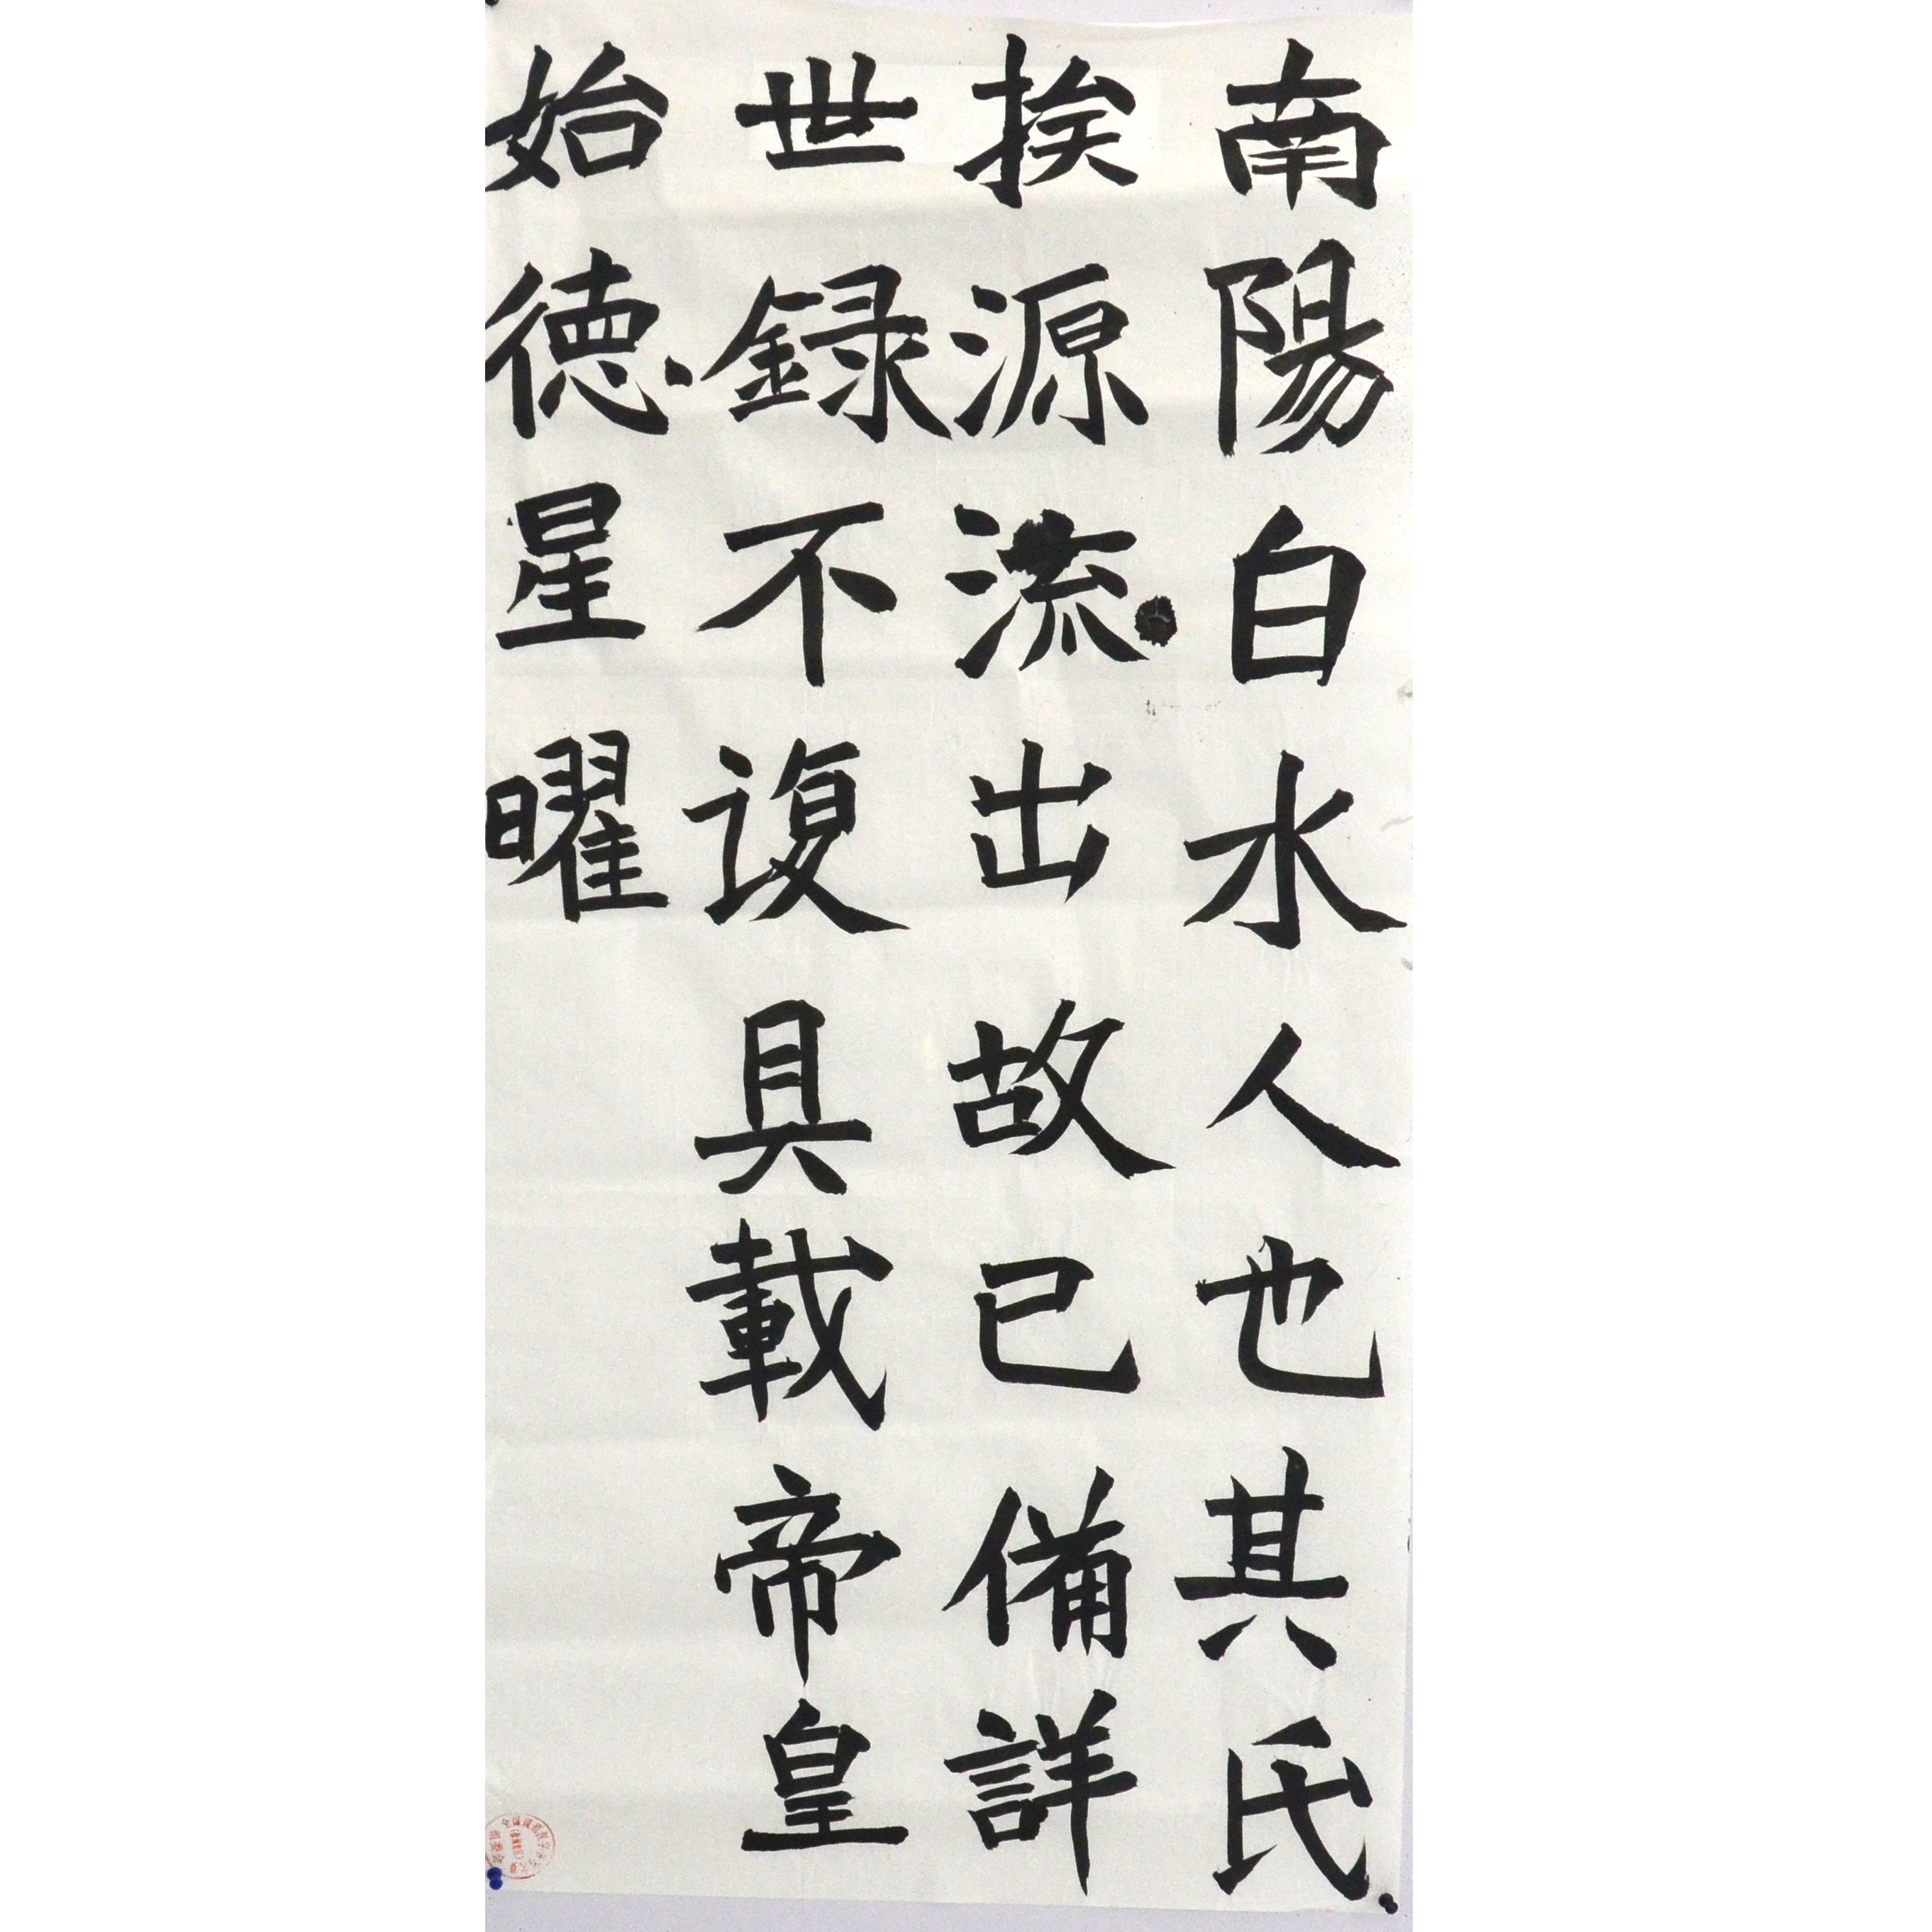 南陽白水人也其氏
挨源流出故已備詳
世録不復具載帝皇
始德星曜